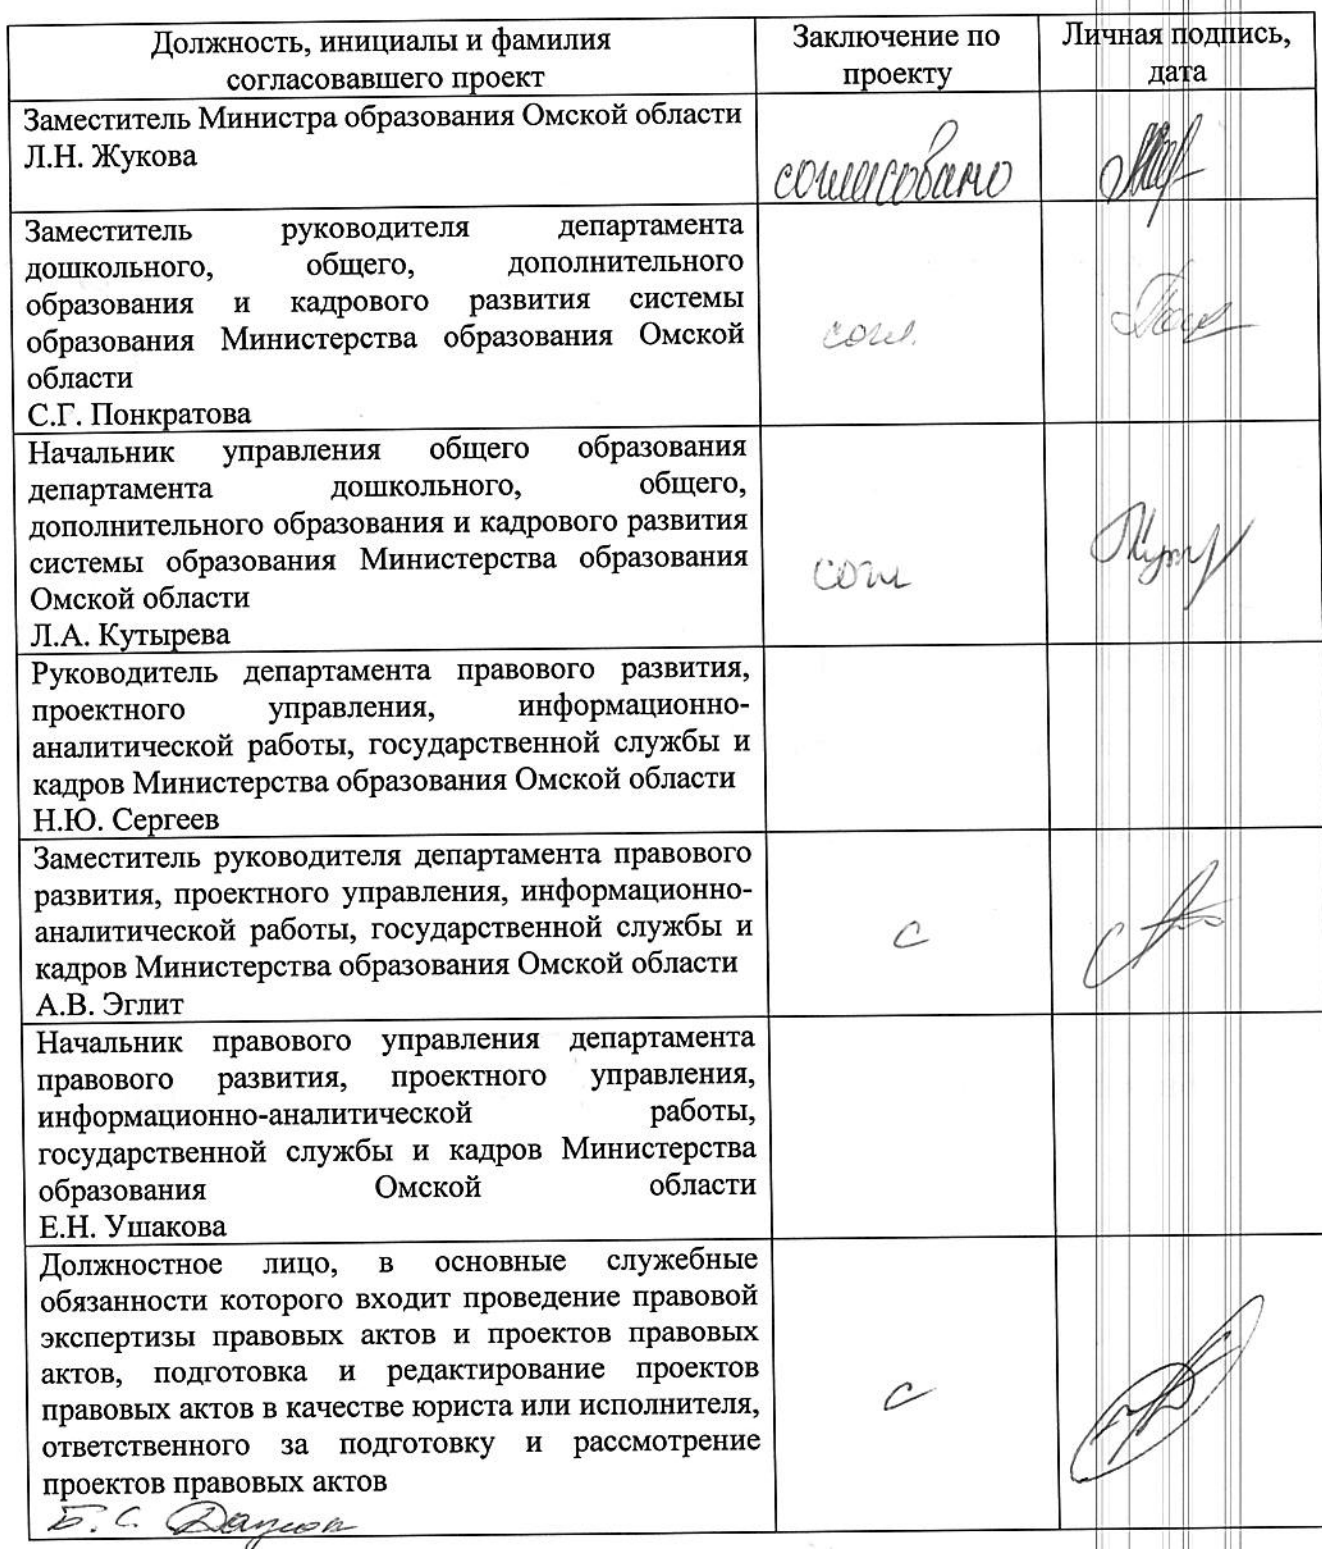 Должность, инициалы и фамилия
согласовавшего проект
Заключение по
проекту
Личная подпись,
дата
Заместитель Министра образования Омской области
Л.Н. Жукова
согласовано
Заместитель руководителя департамента
дошкольного, общего, дополнительного
образования и кадрового развития системы
образования Министерства образования Омской
области
С.Г. Понкратова
согл.
Начальник управления общего образования
департамента дошкольного, общего,
дополнительного образования и кадрового развития
системы образования Министерства образования
Омской области
Л.А. Кутырева
согл
Руководитель департамента правового развития,
проектного управления, информационно-
аналитической работы, государственной службы и
кадров Министерства образования Омской области
Н.Ю. Сергеев
Заместитель руководителя департамента правового
развития, проектного управления, информационно-
аналитической работы, государственной службы и
кадров Министерства образования Омской области
А.В. Эглит
с
Начальник правового управления департамента
правового развития, проектного управления,
информационно-аналитической работы,
государственной службы и кадров Министерства
образования Омской области
Е.Н. Ушакова
Должностное лицо, в основные служебные
обязанности которого входит проведение правовой
экспертизы правовых актов и проектов правовых
актов, подготовка и редактирование проектов
правовых актов в качестве юриста или исполнителя,
ответственного за подготовку и рассмотрение
проектов правовых актов
Б.С.
с